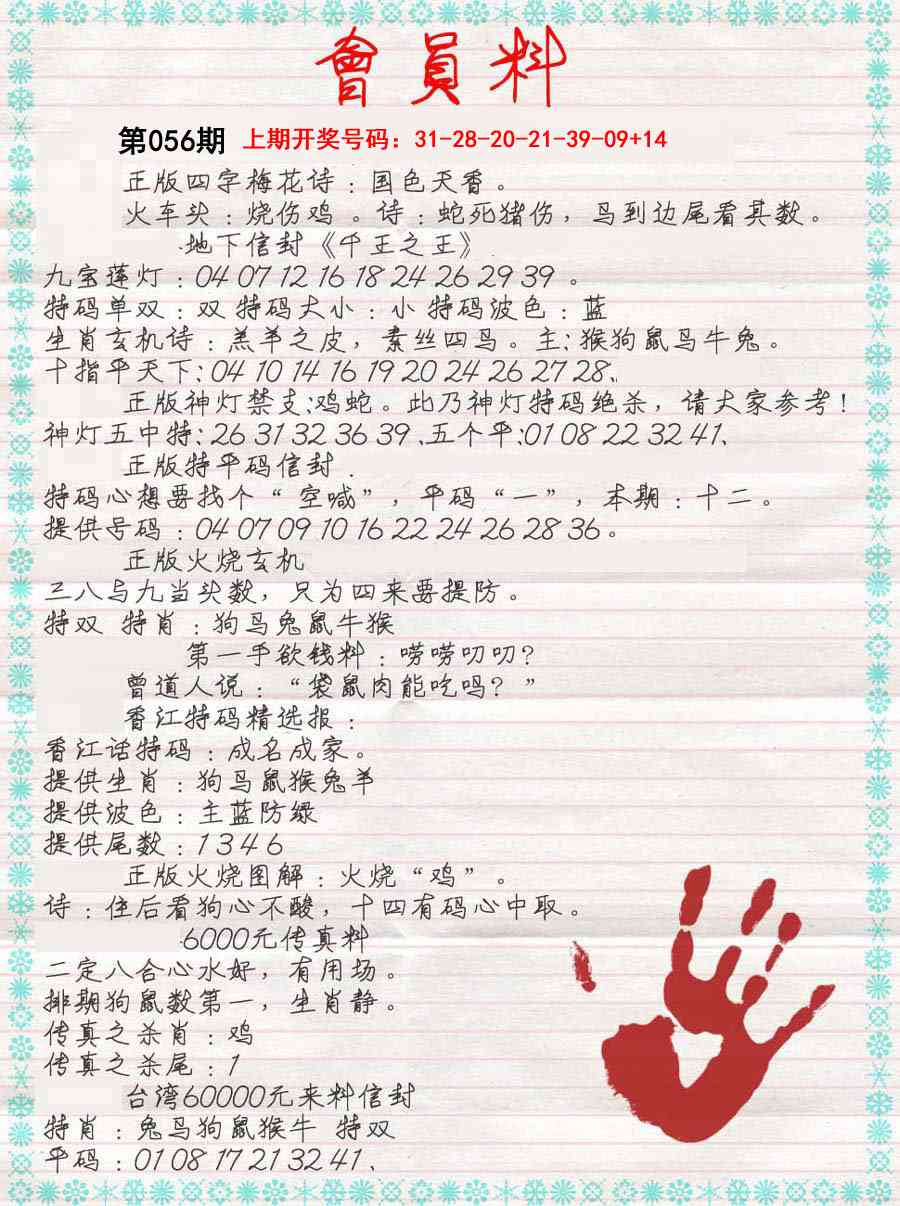 會員料
第056期 上期开奖号码：31-28-20-21-39-09+14
正版四字梅花诗：国色天香。
火车头：烧伤鸡 。诗：蛇死猪伤，鸟到边尾看其数。
·地下信封《千王之王》.
九宝莲灯：04 07 12 16 18 24 26 29 39 。
特码单双：双 特码大小：小 特码波色：蓝
生肖玄机诗：羔羊之皮，素丝四鸟。主：猴狗鼠鸟牛兔。
十指平天下：04 10 14 16 19 20 24 26 27 28、
正版神灯禁支:鸡蛇。此乃神灯特码绝杀，请大家参考！
神灯五中特：26 31 32 36 39 、五个平:01 08 22 32 41、
正版特平码信封 .
特码心想要找个“空喊”，平码“一”，本期：十二。
提供号码：04 07 09 10 16 22 24 26 28 36。
正版火烧玄机
三八与九当头数，只为四来要提防。
特双 特肖：狗鸟兔鼠牛猴
第一手欲钱料：唠唠叨叨？
曾道人说：“袋鼠肉能吃吗？”
香江特码精选报：
香江话特码：成名成家。
提供生肖：狗鸟鼠猴兔羊
提供波色：主蓝防绿
提供尾数：1 3 4 6
正版火烧图解：火烧“鸡”。
诗：住后看狗心不酸，十四有码心中取。
·6000元传真料
二定八合心水好，有用场。
排期狗鼠数第一，生肖静。
传真之杀肖：鸡
传真之杀尾：1
台湾60000元来料信封
特肖：兔鸟狗鼠猴牛 特双
平码：01 08 17 21 32 41、